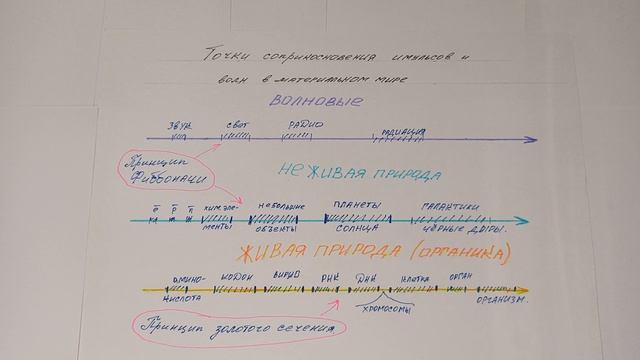 Точки соприкосновения импульсов и
волн в материальном мире
ВОЛНОВЫЕ
ЗВУК СВЕТ РАДИО РАДИАЦИЯ
Принцип
Фиббоначи
НЕ ЖИВАЯ ПРИРОДА
e p n хим.эле- небольшие ПЛАНЕТЫ ГАЛАКТИКИ
менты объекты СОЛНЦА ЧЁРНЫЕ ДЫРЫ.
ЖИВАЯ ПРИРОДА (ОРГАНИКА)
АМИНО- КОДОН ВИРУС РНК ДНК КЛЕТКА ОРГАН
КИСЛОТА ОРГАНИЗМ.
ХРОМОСОМЫ
Принцип золотого сечения